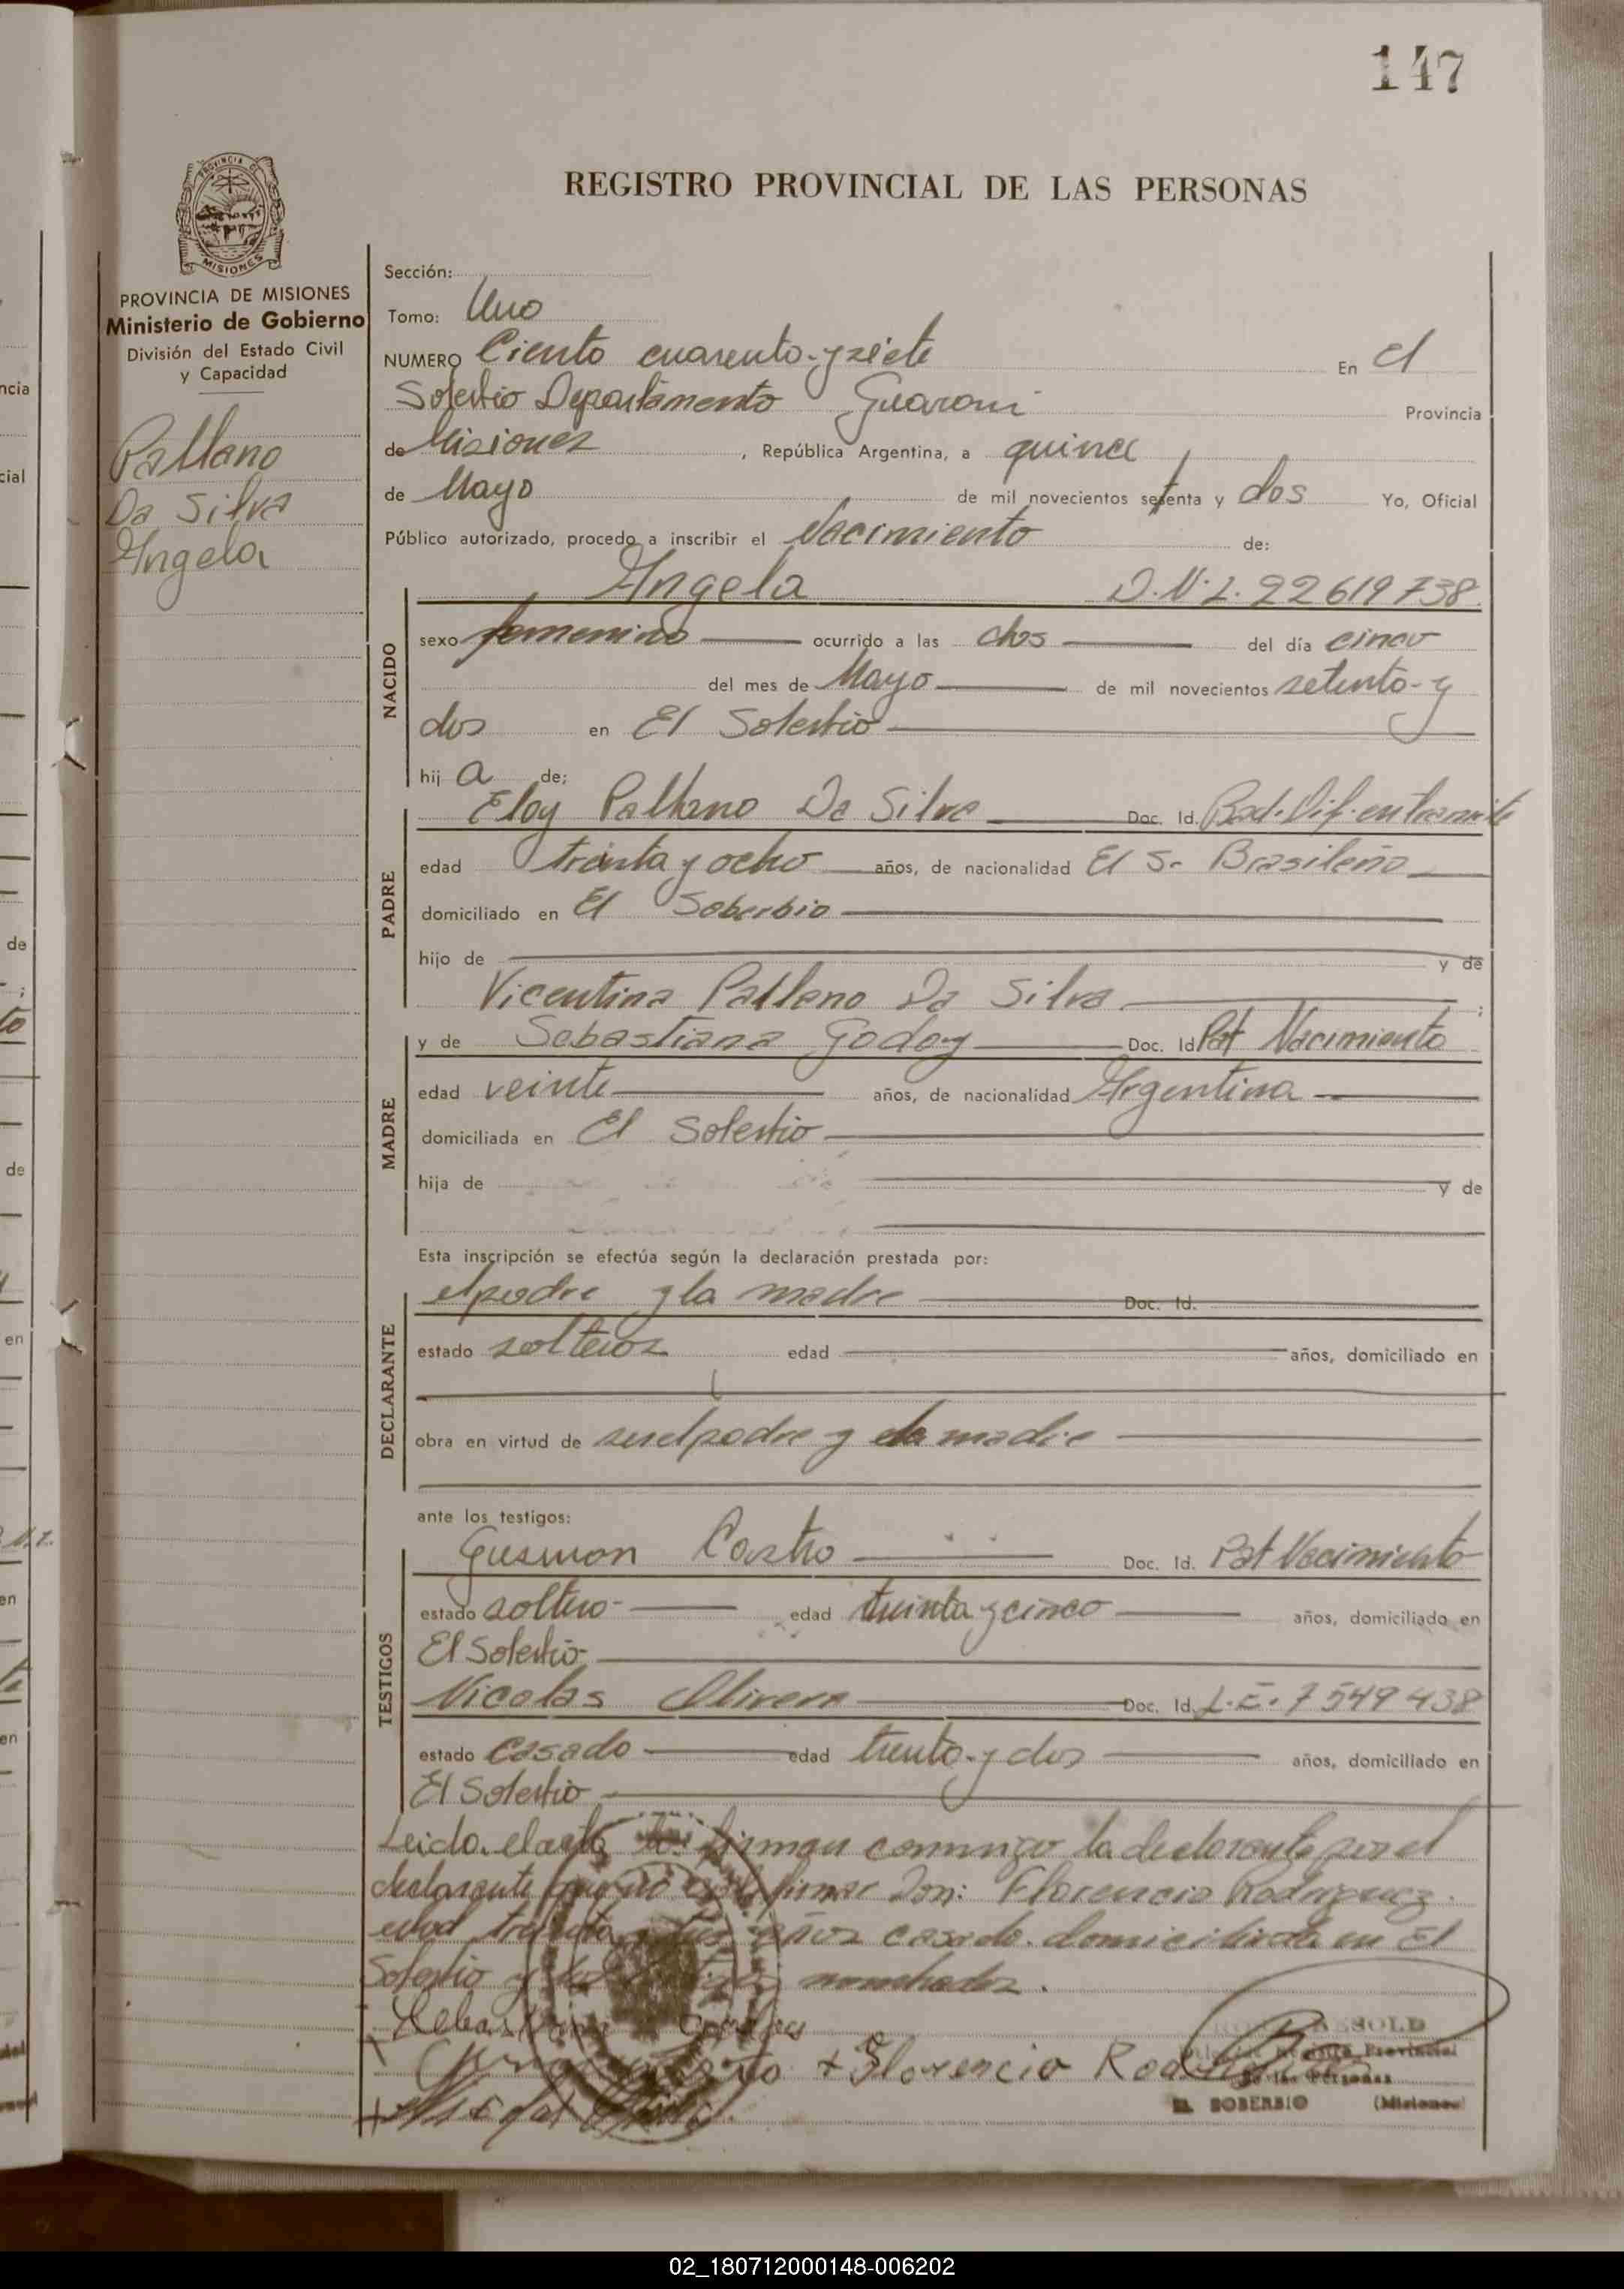 147
REGISTRO PROVINCIAL DE LAS PERSONAS
PROVINCIA DE MISIONES
Ministerio de Gobierno
División del Estado Civil
y Capacidad
Pallano
Da Silva
Angela
Sección:
Tomo: Uno
NUMERO Ciento cuarenta y siete En El
Soberbio Departamento Guarani Provincia
de Misiones, República Argentina, a quince
de Mayo de mil novecientos setenta y dos Yo, Oficial
Público autorizado, procedo a inscribir el Nacimiento de:
NACIDO
Angela D.N.I. 22619738
sexo femenino ocurrido a las dos del día cinco
del mes de Mayo de mil novecientos setenta y
dos en El Soberbio
hij a de:
PADRE
Eloy Pallano Da Silva Doc. Id.
edad treinta y ocho años, de nacionalidad El S. Brasileña
domiciliado en El Soberbio
hijo de y de
Vicentina Pallano Da Silva ;
MADRE
y de Sebastiana Godoy Doc. Id. Pat Nacimiento
edad veinte años, de nacionalidad Argentina
domiciliada en El Soberbio
hija de y de
Esta inscripción se efectúa según la declaración prestada por:
DECLARANTE
el padre y la madre Doc. Id.
estado solteros edad años, domiciliado en
obra en virtud de ser el padre y la madre
ante los testigos:
TESTIGOS
Gusmon Castro Doc. Id. Pat Nacimiento
estado soltero edad treinta y cinco años, domiciliado en
El Soberbio
Nicolas Olivera Doc. Id. L.E. 7549438
estado casado edad treinta y dos años, domiciliado en
El Soberbio
Leida el acta firman conmigo la declarante por el
declarante que no firmar Don: Florencio Rodriguez
edad treinta años casado domiciliado en El
Soberbio y los testigos nombrados.
Florencio Rodriguez
EL SOBERBIO (Misiones)
02_180712000148-006202